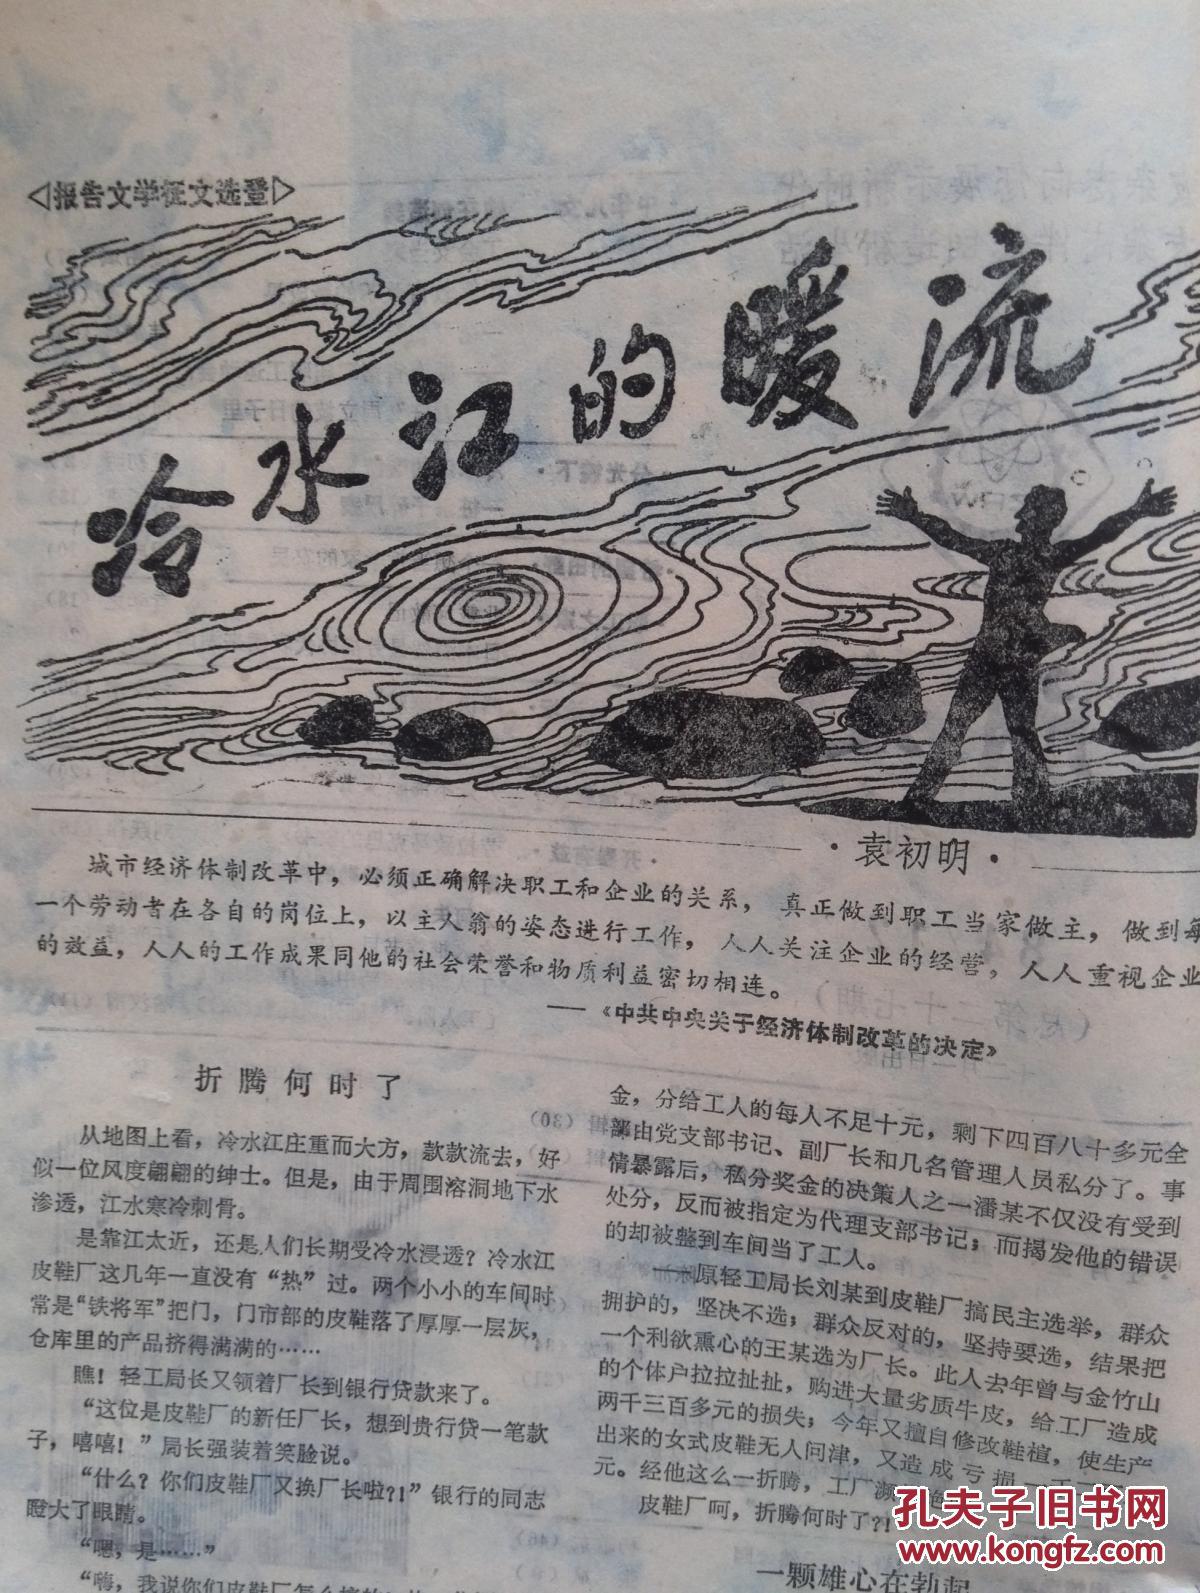 ◁报告文学征文选登▷
冷水江的暖流
·袁初明·
城市经济体制改革中，必须正确解决职工和企业的关系，真正做到职工当家做主，做到每
一个劳动者在各自的岗位上，以主人翁的姿态进行工作，人人关注企业的经营，人人重视企业
的效益，人人的工作成果同他的社会荣誉和物质利益密切相连。
——《中共中央关于经济体制改革的决定》
折腾何时了
从地图上看，冷水江庄重而大方，款款流去，好
似一位风度翩翩的绅士。但是，由于周围溶洞地下水
渗透，江水寒冷刺骨。
是靠江太近，还是人们长期受冷水浸透？冷水江
皮鞋厂这几年一直没有“热”过。两个小小的车间时
常是“铁将军”把门，门市部的皮鞋落了厚厚一层灰，
仓库里的产品挤得满满的……
瞧！轻工局长又领着厂长到银行贷款来了。
“这位是皮鞋厂的新任厂长，想到贵行贷一笔款
子，嘻嘻！”局长强装着笑脸说。
“什么？你们皮鞋厂又换厂长啦？！”银行的同志
瞪大了眼睛。
“嗯，是……”
“嗨，我说你们皮鞋厂怎么搞的
金，分给工人的每人不足十元，剩下四百八十多元全
部由党支部书记、副厂长和几名管理人员私分了。事
情暴露后，私分奖金的决策人之一潘某不仅没有受到
处分，反而被指定为代理支部书记；而揭发他的错误
的却被整到车间当了工人。
——原轻工局长刘某到皮鞋厂搞民主选举，群众
拥护的，坚决不选；群众反对的，坚持要选，结果把
一个利欲熏心的王某选为厂长。此人去年曾与金竹山
的个体户拉拉扯扯，购进大量劣质牛皮，给工厂造成
两千三百多元的损失；今年又擅自修改鞋楦，使生产
出来的女式皮鞋无人问津，又造成亏损
元。经他这么一折腾，工厂濒
皮鞋厂呵，折腾何时了？！
一颗雄心在勃起
孔夫子旧书网
www.kongfz.com